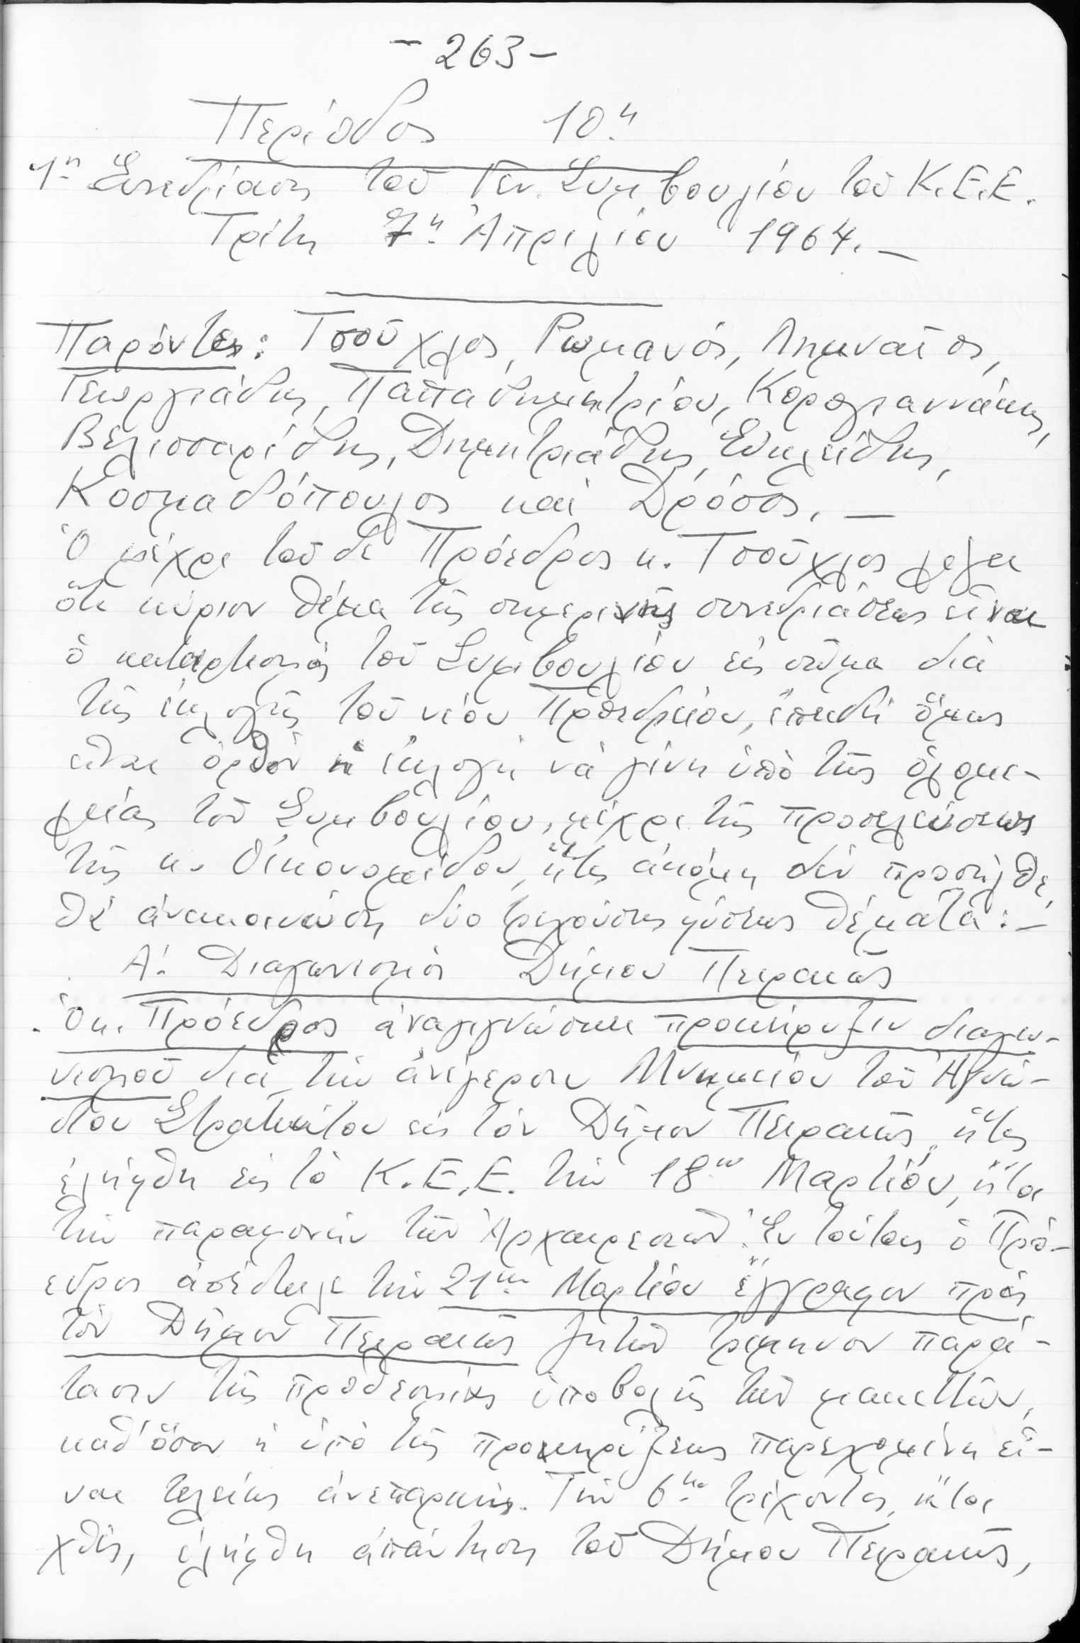 - 263 -
Περίοδος 10η
1η Συνεδρίασις τοῦ Γεν. Συμβουλίου τοῦ Κ.Ε.Ε.
Τρίτη 7η Ἀπριλίου 1964. -
Παρόντες: Τσοῦχλος, Ρωμανός, Λημναῖος,
Γεωργιάδης, Παπαδημητρίου, Κορογιαννάκης,
Βελισσαρίδης, Δημητριάδης, Εὐκλείδης,
Κοσμαδόπουλος καὶ Δρόσος. -
Ὁ μέχρι τοῦδε Πρόεδρος κ. Τσοῦχλος λέγει
ὅτι κύριον θέμα τῆς σημερινῆς συνεδριάσεως εἶναι
ὁ καταρτισμός τοῦ Συμβουλίου εἰς σῶμα διὰ
τῆς ἐκλογῆς τοῦ νέου Προεδρείου, ἐπειδή ὅμως
εἶναι ὀρθόν ἡ ἐκλογή νὰ γίνη ὑπὸ τῆς ὁλομε-
λείας τοῦ Συμβουλίου, μέχρι τῆς προσελεύσεως
τῆς κ. Οἰκονομίδου, ἥτις ἀκόμη δέν προσῆλθε,
θὰ ἀνακοινώση δύο τρεχούσης φύσεως θέματα: -
Α'. Διαγωνισμός Δήμου Πειραιῶς
Ὁ κ. Πρόεδρος ἀναγιγνώσκει προκήρυξιν διαγω-
νισμοῦ διὰ τὴν ἀνέγερσιν Μνημείου τοῦ Ἀγνώ-
στου Στρατιώτου εἰς τὸν Δῆμον Πειραιῶς, ἥτις
ἐλήφθη εἰς τὸ Κ.Ε.Ε. τὴν 18ην Μαρτίου, ἤτοι
τὴν παραμονήν τῶν Ἀρχαιρεσιῶν. Ἐν τούτοις ὁ Πρό-
εδρος ἀπέστειλε τὴν 21ην Μαρτίου ἔγγραφον πρός
τὸν Δῆμον Πειραιῶς ζητῶν τρίμηνον παρά-
τασιν τῆς προθεσμίας ὑποβολῆς τῶν μακεττῶν,
καθ' ὅσον ἡ ὑπὸ τῆς προκηρύξεως παρεχομένη εἶ-
ναι τελείως ἀνεπαρκής. Τὴν 6ην τρέχοντος, ἤτοι
χθές, ἐλήφθη ἀπάντησις τοῦ Δήμου Πειραιῶς,